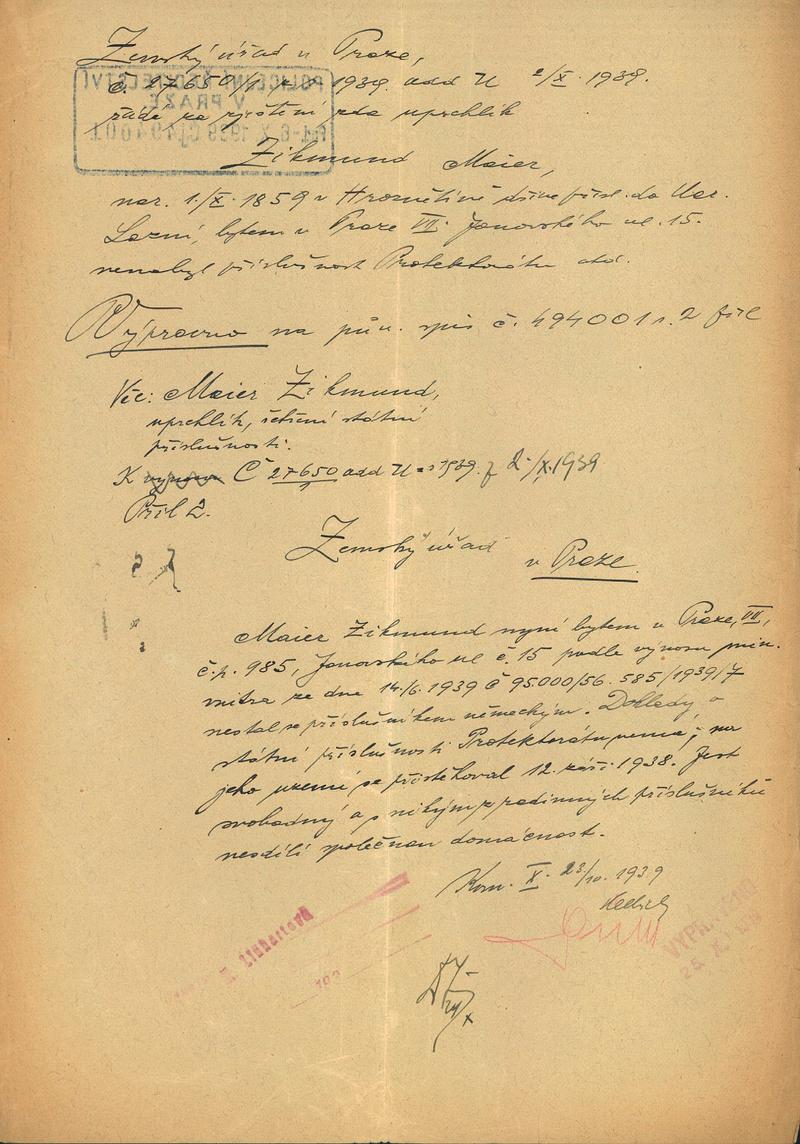 Zemský úřad v Praze,
č. 27650/1 1939 add U 2/X. 1939.
žádá za zjištění zda uprchlík
Zikmund Maier,
nar. 1./X. 1859 v Hroznětíně dříve přísl. do Kar.
Lázní, bytem v Praze VII. Janovského ul. 15.
nenabyl příslušnost Protektorátu atd.
Vypraviti na pův. spis č. 494001 r.
Věc: Maier Zikmund,
uprchlík, šetření státní
příslušnosti.
K Č 27650 add U 1939. z 2./X. 1939
Příl 2.
Zemský úřad
v Praze.
Maier Zikmund nyní bytem v Praze, VII,
č.p. 985, Janovského ul č. 15 podle výnosu min.
vnitra ze dne 14./6. 1939 Č 95.000/56.585/1939/7
nestal se příslušníkem německým. Doklady o
státní příslušnosti Protektorátu nemá; na
jeho území se přistěhoval 12. září 1938. Jest
svobodný a s nikým z rodinných příslušníků
nesdílí společnou domácnost.
Kom. X. 23/10. 1939
POLICEJNÍ ŘEDITELSTVÍ
V PRAZE
494001
Linhartová
193
VYPRAVENO